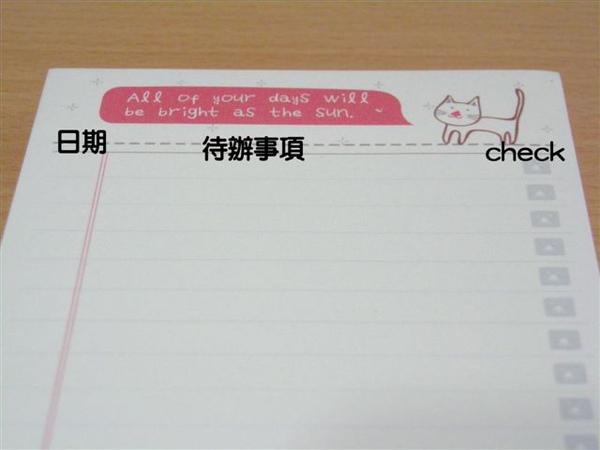 All of your days will
be bright as the sun.
日期 待辦事項 check